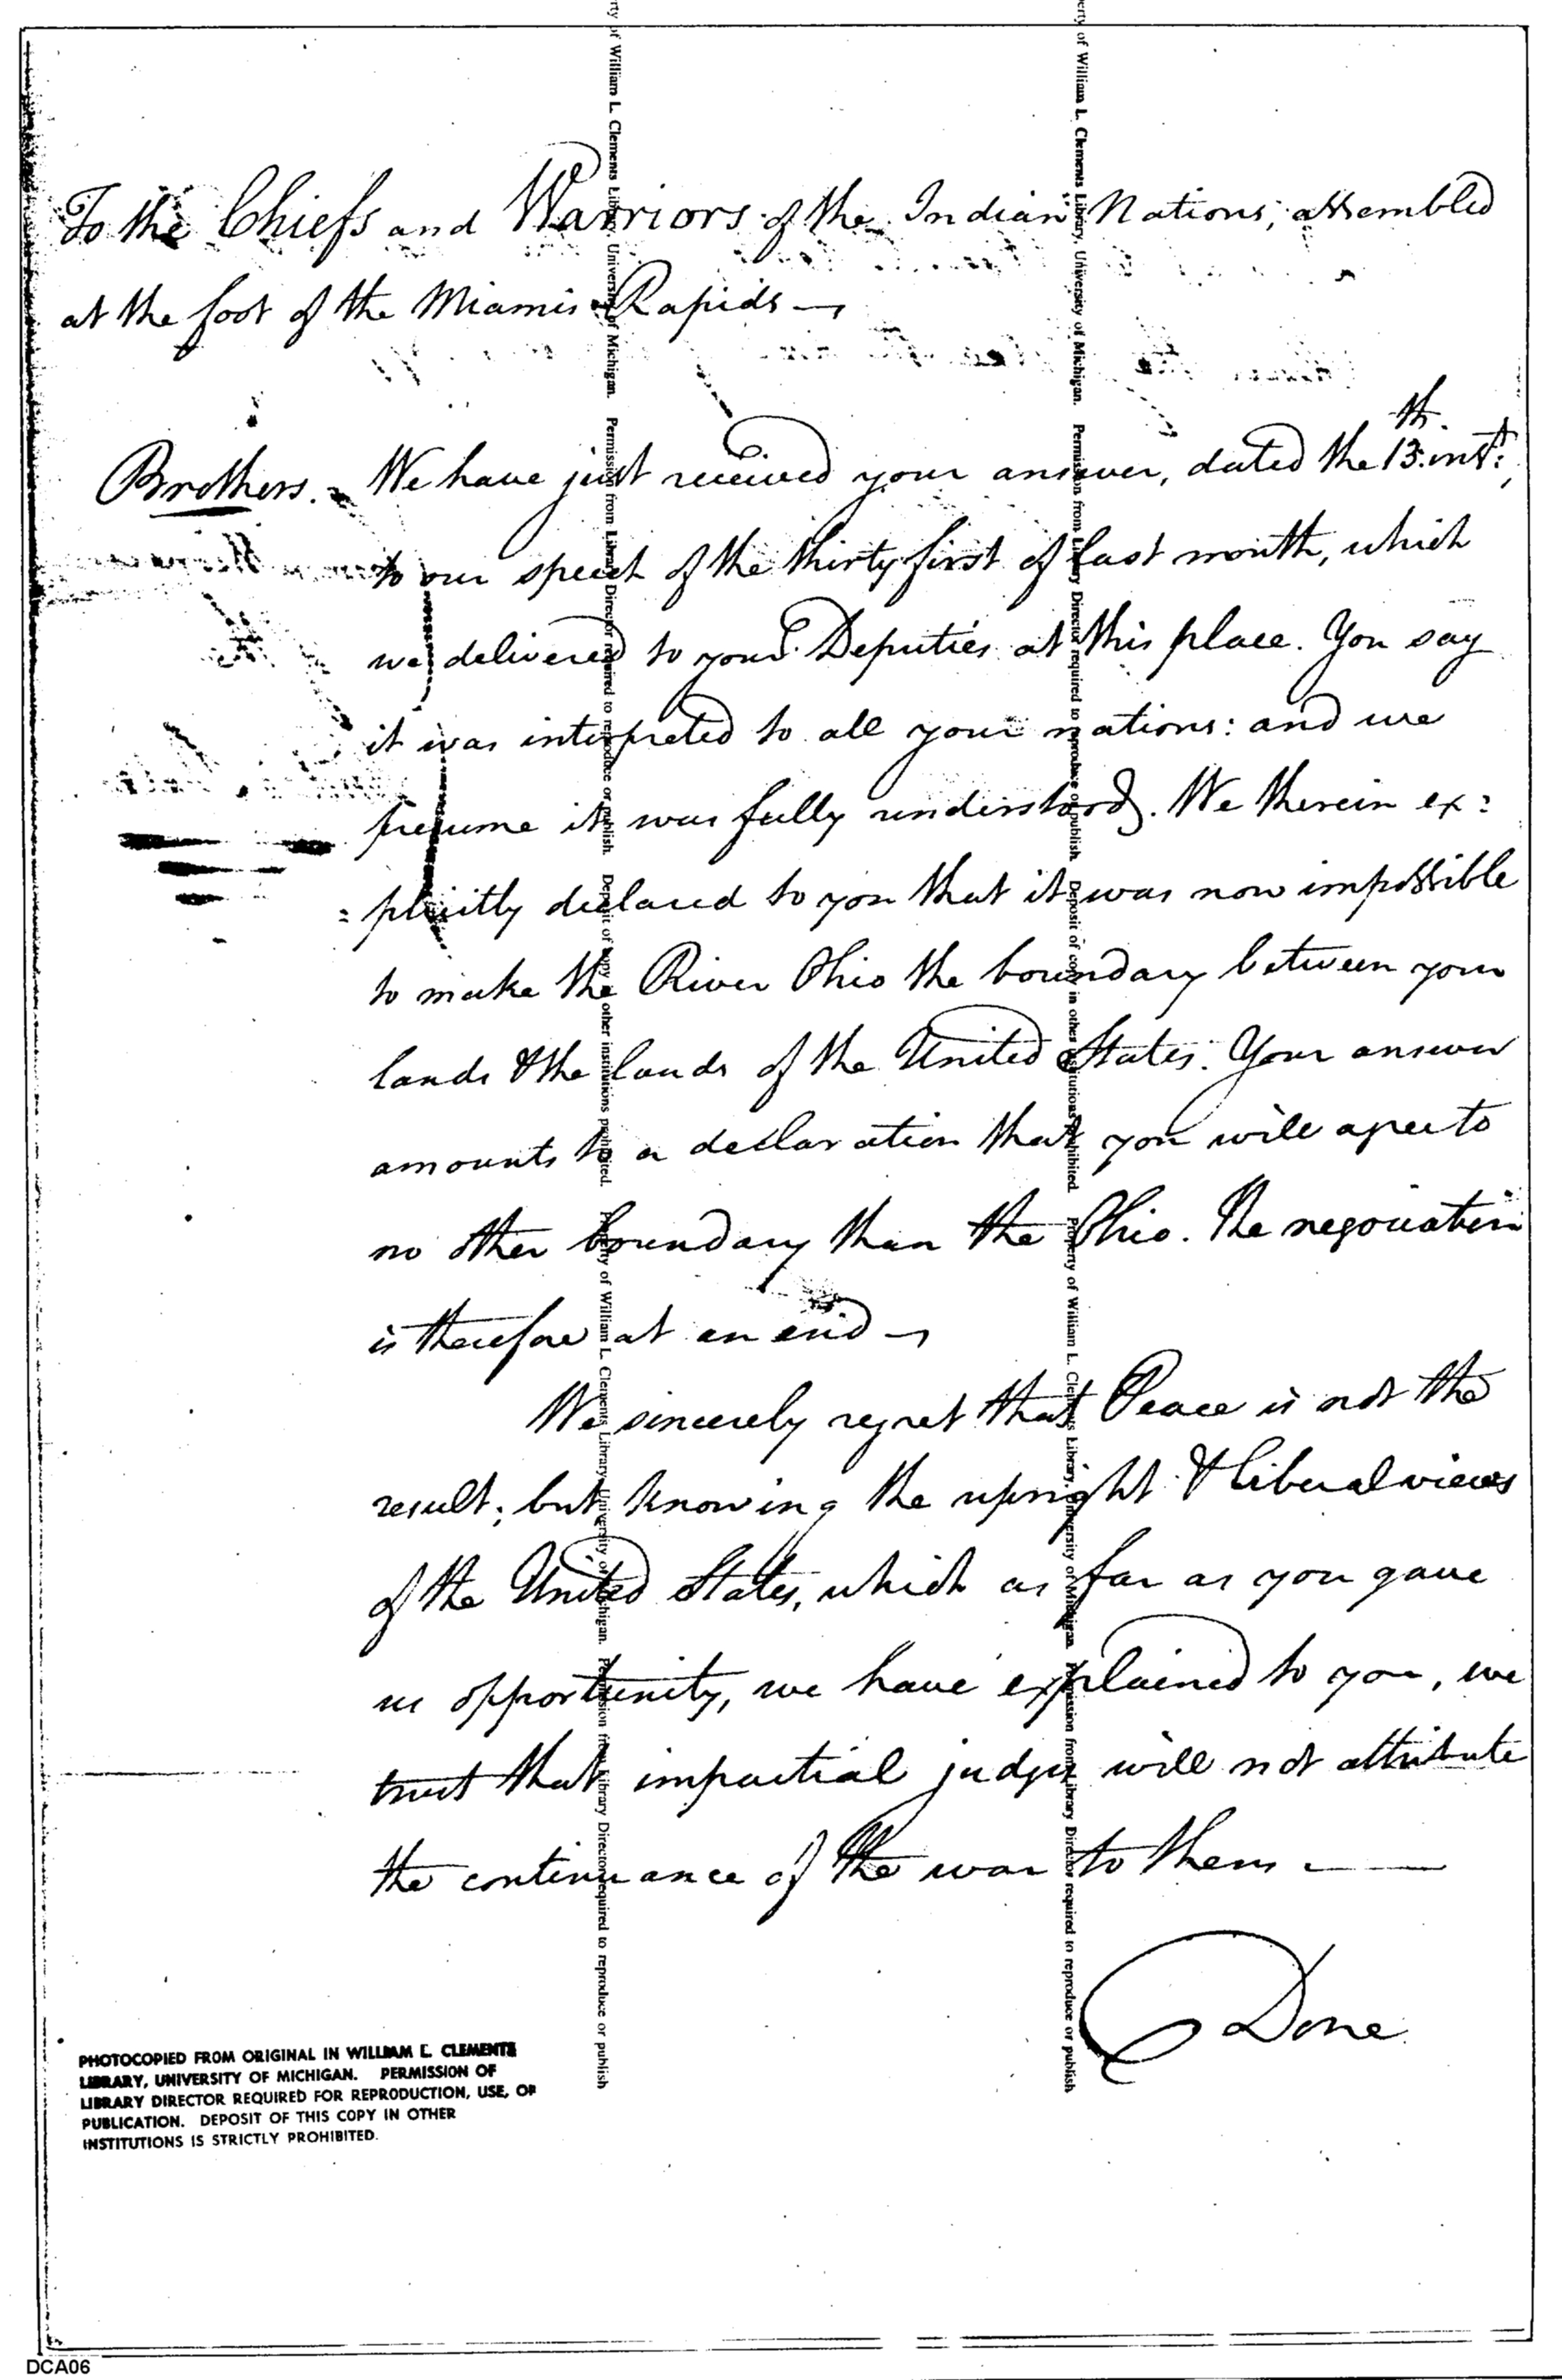 To the Chiefs and Warriors of the Indian Nations, assembled
at the foot of the Miamis Rapids —
Brothers. We have just received your answer, dated the 13th. inst:,
to our speech of the thirty first of last month, which
we delivered to your Deputies at this place. You say
it was interpreted to all your nations: and we
presume it was fully understood. We therein ex=
=plicitly declared to you that it was now impossible
to make the River Ohio the boundary between your
lands & the lands of the United States. Your answer
amounts to a declaration that you will agree to
no other boundary than the Ohio. The negociation
is therefore at an end —
We sincerely regret that Peace is not the
result; but knowing the upright & liberal views
of the United States, which as far as you gave
us opportunity, we have explained to you, we
trust that impartial judges will not attribute
the continuance of the war to them. —
Done
PHOTOCOPIED FROM ORIGINAL IN WILLIAM L. CLEMENTS
LIBRARY, UNIVERSITY OF MICHIGAN. PERMISSION OF
LIBRARY DIRECTOR REQUIRED FOR REPRODUCTION, USE, OR
PUBLICATION. DEPOSIT OF THIS COPY IN OTHER
INSTITUTIONS IS STRICTLY PROHIBITED.
rty of William L. Clements Library, University of Michigan. Permission from Library Director required to reproduce or publish. Deposit of copy in other institutions prohibited. Property of William L. Clements Library, University of Michigan. Permission from Library Director required to reproduce or publish
erty of William L. Clements Library, University of Michigan. Permission from Library Director required to reproduce or publish. Deposit of copy in other institutions prohibited. Property of William L. Clements Library, University of Michigan. Permission from Library Director required to reproduce or publish
DCA06